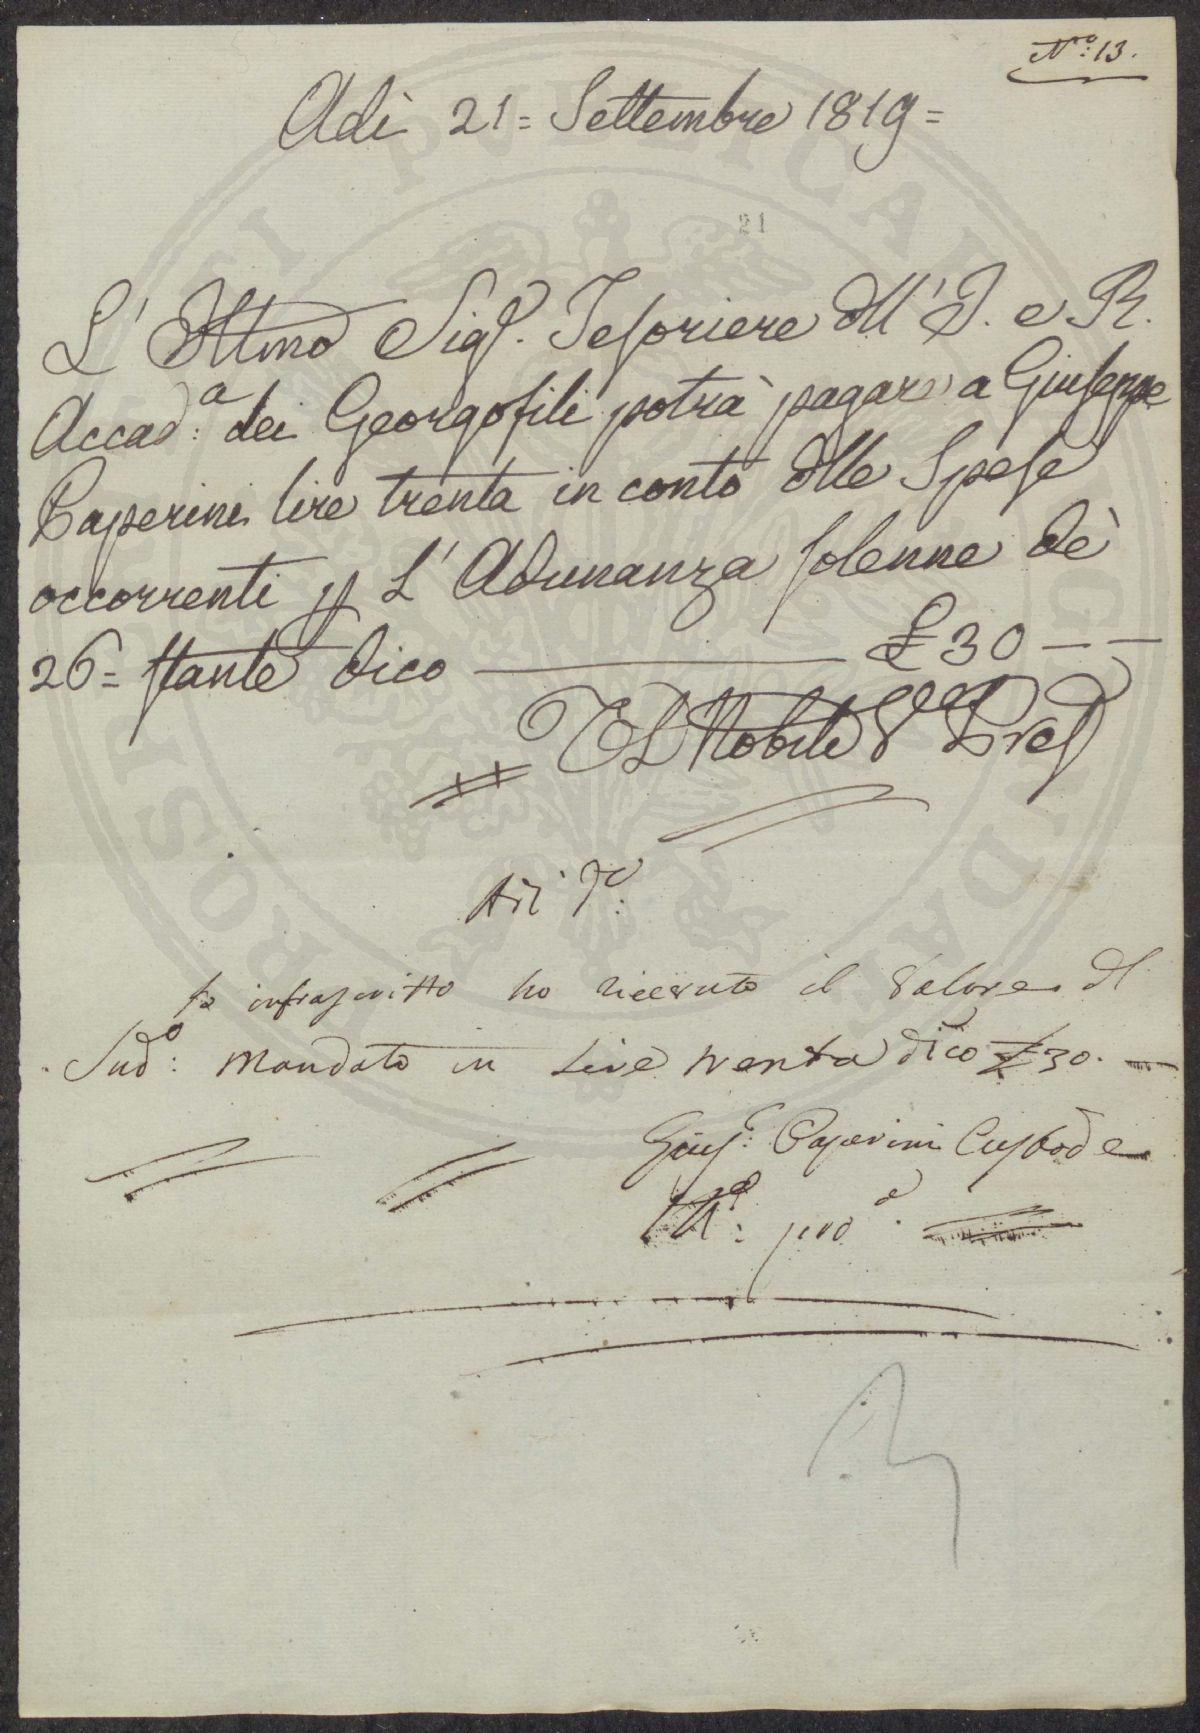 N.ro 13.
Adì 21= Settembre 1819=
21
L' Ill.mo Sig.r Tesoriere dell' I. e R.
Accad.a dei Georgofili potrà pagare a Giuseppe
Paperini lire trenta in conto delle Spese
occorrenti p L' Adunanza solenne dè
26= stante dico £ 30 — —
Nobili V. Pres
Adi d.o
Io infrascritto ho ricevuto il Valore del
Sud.o Mandato in Lire trenta dico £ 30. —
Gius.e Paperini Custode
M.o pro.a
PUBLICAE